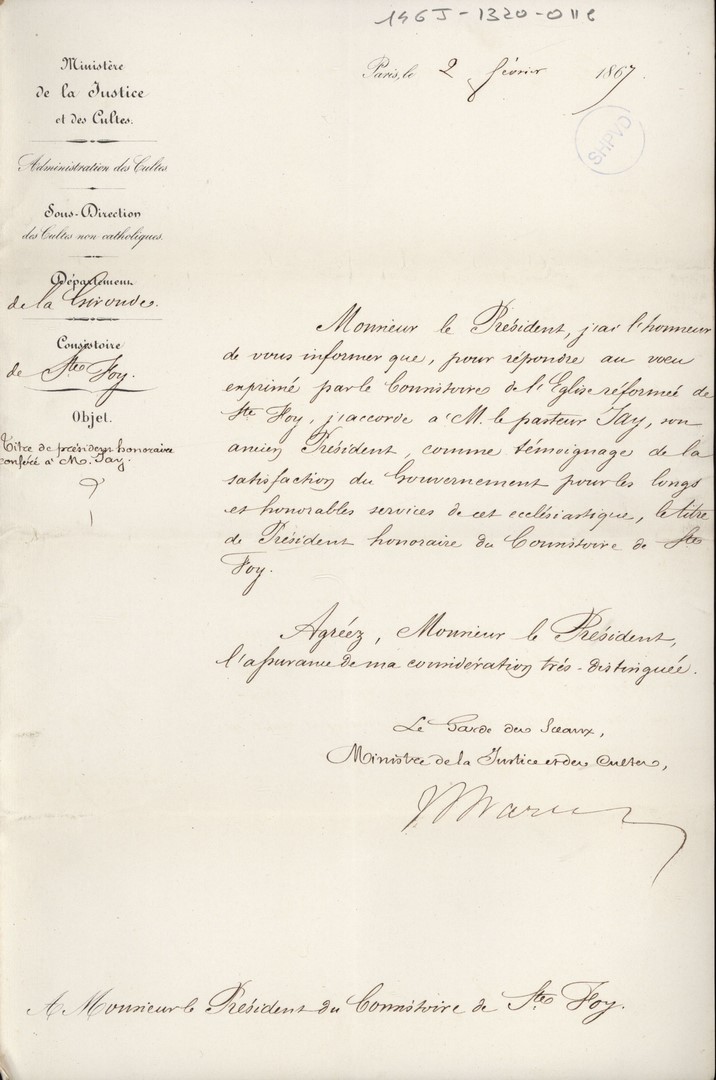 146J-1320-011c
Ministère
de la Justice
et des Cultes.
Administration des Cultes
Sous-Direction
des Cultes non catholiques.
Département
de la Gironde.
Consistoire
de Ste Foy.
Objet.
Titre de président honoraire
conféré à M. Jay.
Paris, le 2 février 1867.
SHPVD
Monsieur le Président, j'ai l'honneur
de vous informer que, pour répondre au vœu
exprimé par le Consistoire de l'Eglise réformée de
Ste Foy, j'accorde à M. le pasteur Jay, son
ancien Président, comme témoignage de la
satisfaction du Gouvernement pour les longs
et honorables services de cet ecclésiastique, le titre
de Président honoraire du Consistoire de Ste
Foy.
Agréez, Monsieur le Président,
l'assurance de ma considération très-distinguée.
Le Garde des Sceaux,
Ministre de la Justice et des Cultes,
A Monsieur le Président du Consistoire de Ste Foy.